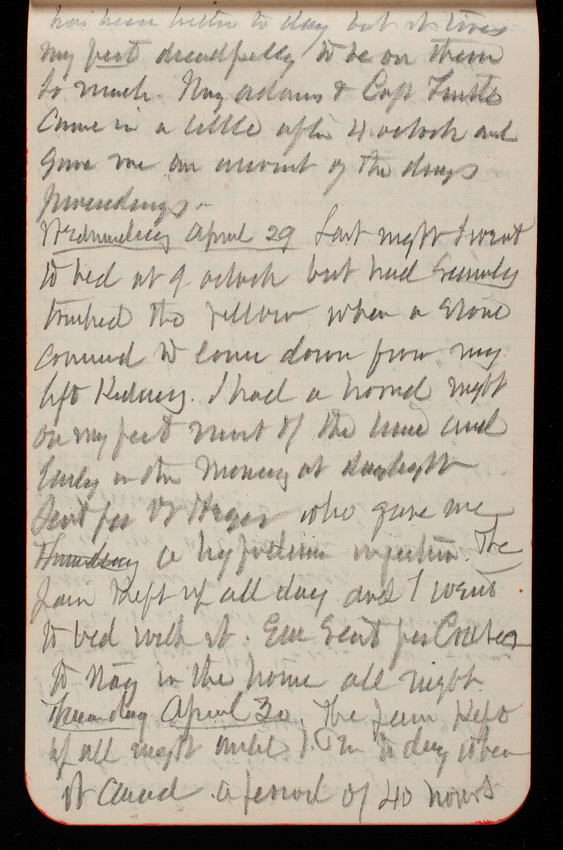 has been better to day but it tires
my feet dreadfully to be on them
so much. Nag Adams & Capt Tuttle
came in a little after 4 oclock and
gave me an account of the days
proceedings -
Wednesday April 29 Last night I went
to bed at 9 oclock but had scarcely
touched the pillow when a stone
commenced to come down from my
left Kidney. I had a horrid night
on my feet most of the time and
Early in the Morning at daylight
Sent for Dr who gave me
Thursday a hypodermic injection. The
pain Kept up all day and I went
to bed with it. Em sent for
to stay in the house all night
Thursday April 30. The pain Kept
up all night until to day when
it ceased a period of 40 hours